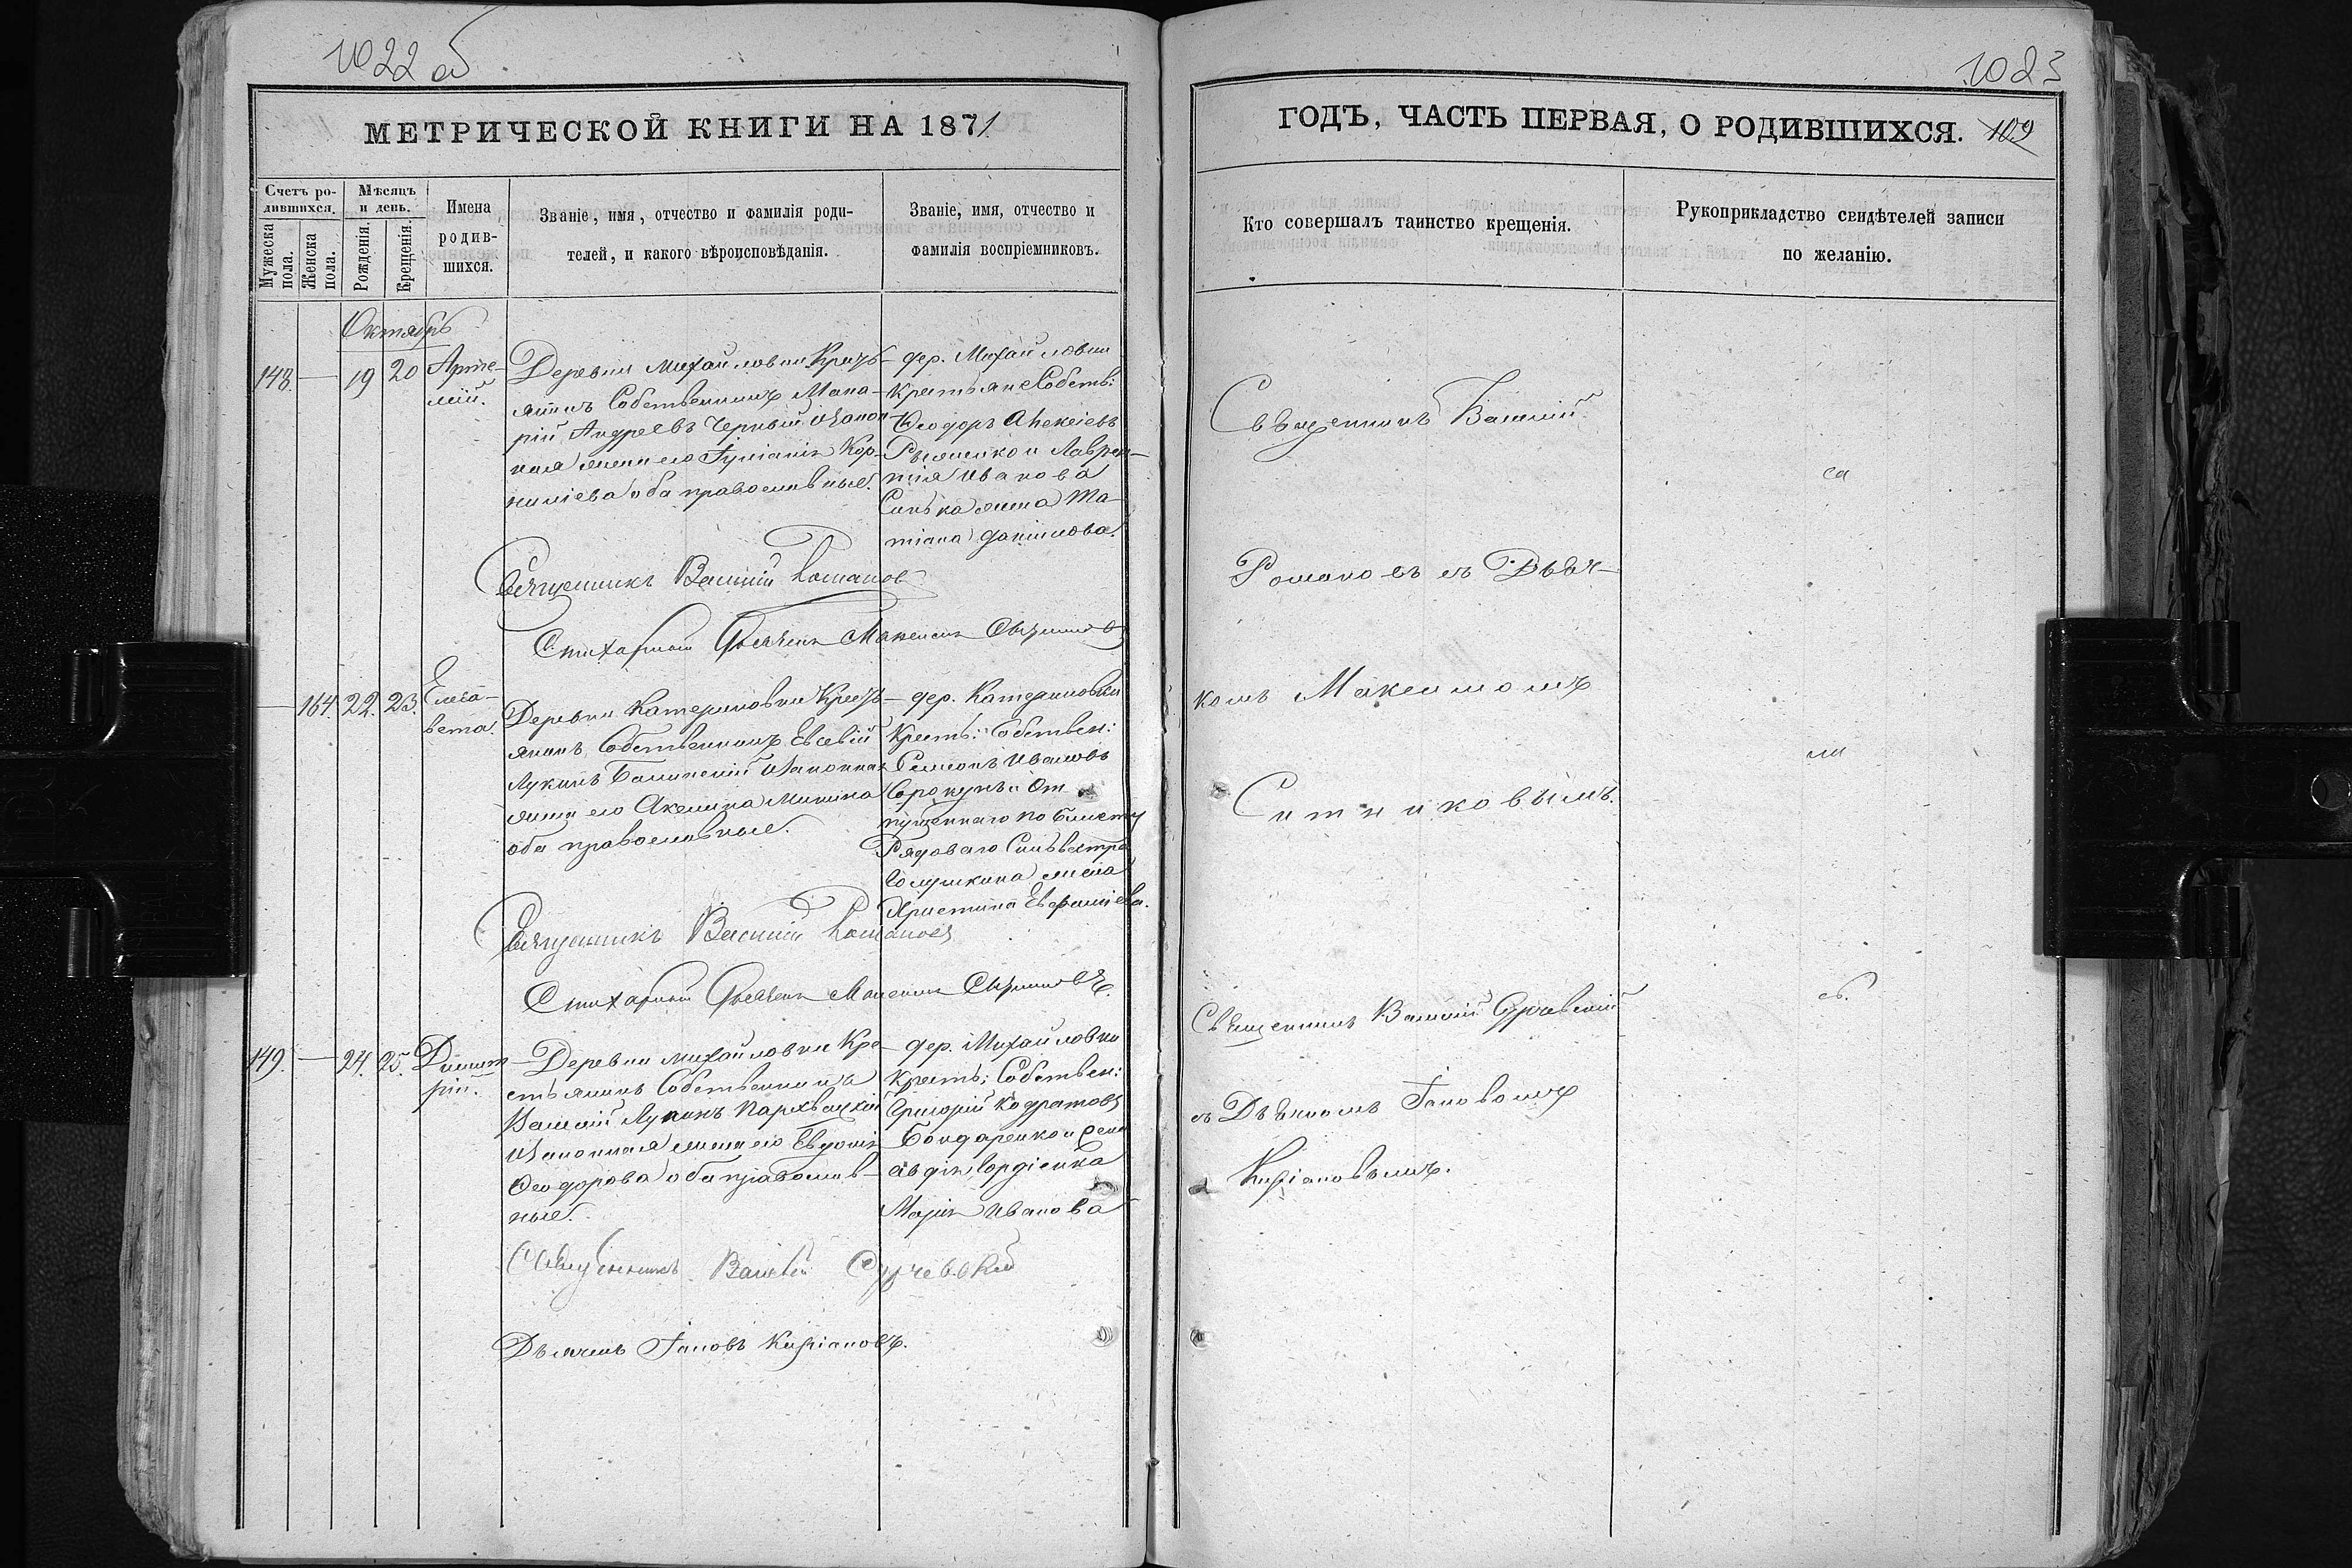 1022 об
МЕТРИЧЕСКОЙ КНИГИ НА 1871
Счетъ ро-
дившихся.
Мѣсяцъ
и день.
Мужеска
пола.
Женска
пола.
Рожденія.
Крещенія.
Имена
родив-
шихся.
Званіе, имя, отчество и фамилія роди-
телей, и какого вѣроисповѣданія.
Званіе, имя, отчество и
фамилія воспріемниковъ.
Октябрь
148. — 19 20
Арте-
мій.
Деревни Михайловки Кресть-
янинъ Собственникъ Мака-
рій Андреевъ Черный и закон-
ная жена его Іуліанія Кор-
ниліева оба православные.
дер. Михайловки
Крестьяне Собств:
Ѳеодоръ Алексіевъ
и Лаврен-
тія Иванова
жена Та-
тіана Даніилова.
Священникъ Василій Романов
Стихарный Дьячекъ Максимъ Ситников
— 164. 22. 23.
Елиса-
вета.
Деревни Катериновки Кресть-
янинъ Собственникъ Евсевій
Лукинъ и законная
жена его Акелина Минина
оба православные.
дер. Катериновки
Кресть: Собствен:
Симеонъ Ивановъ
и От
пущеннаго по билету
Рядоваго Сильвестра
жена
Христина
Священникъ Василій Романовъ
Стихарный Дьячекъ Максимъ Ситниковъ.
149. — 24. 25.
Димит
рій.
Деревни Михайловки Кре
стьянинъ Собственникъ
Василій Лукинъ
и законная жена его Евдокія
Ѳеодорова оба православ-
ные.
дер. Михайловки
Кресть: Собствен:
Григорій Кодратовъ
Бондаренко и
Гордіенка
Марія Иванова
Священникъ Василій
Дьячекъ Іаковъ Киріановъ.
1023
ГОДЪ, ЧАСТЬ ПЕРВАЯ, О РОДИВШИХСЯ. 109
Кто совершалъ таинство крещенія.
Рукоприкладство свидѣтелей записи
по желанію.
Священникъ Василій
Романовъ съ Дьяч-
комъ Максимомъ
Ситниковымъ.
Священникъ Василій
съ Дьячкомъ Іаковомъ
Киріановымъ.